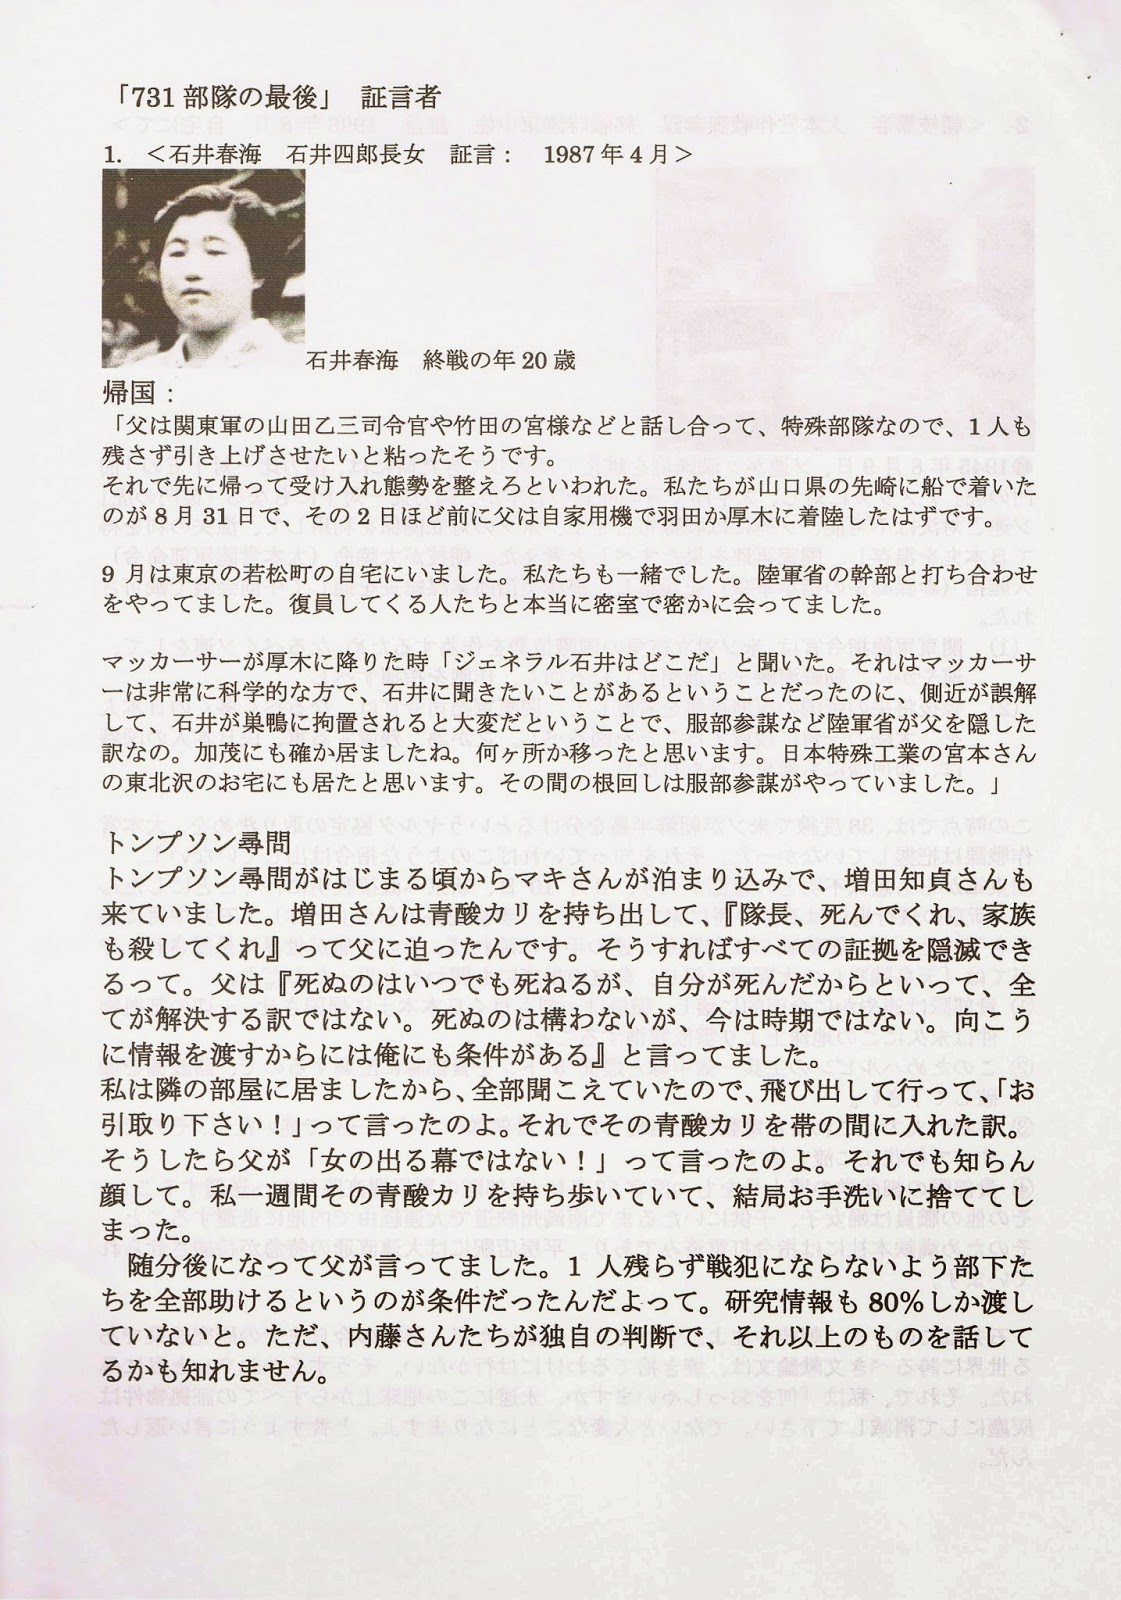 「731部隊の最後」　証言者
1.　＜石井春海　石井四郎長女　証言：　1987年4月＞
石井春海　終戦の年20歳
帰国：
「父は関東軍の山田乙三司令官や竹田の宮様などと話し合って、特殊部隊なので、1人も
残さず引き上げさせたいと粘ったそうです。
それで先に帰って受け入れ態勢を整えろといわれた。私たちが山口県の先崎に船で着いた
のが8月31日で、その2日ほど前に父は自家用機で羽田か厚木に着陸したはずです。
9月は東京の若松町の自宅にいました。私たちも一緒でした。陸軍省の幹部と打ち合わせ
をやってました。復員してくる人たちと本当に密室で密かに会ってました。
マッカーサーが厚木に降りた時「ジェネラル石井はどこだ」と聞いた。それはマッカーサ
ーは非常に科学的な方で、石井に聞きたいことがあるということだったのに、側近が誤解
して、石井が巣鴨に拘置されると大変だということで、服部参謀など陸軍省が父を隠した
訳なの。加茂にも確か居ましたね。何ヶ所か移ったと思います。日本特殊工業の宮本さん
の東北沢のお宅にも居たと思います。その間の根回しは服部参謀がやっていました。」
トンプソン尋問
トンプソン尋問がはじまる頃からマキさんが泊まり込みで、増田知貞さんも
来ていました。増田さんは青酸カリを持ち出して、『隊長、死んでくれ、家族
も殺してくれ』って父に迫ったんです。そうすればすべての証拠を隠滅でき
るって。父は『死ぬのはいつでも死ねるが、自分が死んだからといって、全
てが解決する訳ではない。死ぬのは構わないが、今は時期ではない。向こう
に情報を渡すからには俺にも条件がある』と言ってました。
私は隣の部屋に居ましたから、全部聞こえていたので、飛び出して行って、「お
引取り下さい！」って言ったのよ。それでその青酸カリを帯の間に入れた訳。
そうしたら父が「女の出る幕ではない！」って言ったのよ。それでも知らん
顔して。私一週間その青酸カリを持ち歩いていて、結局お手洗いに捨ててし
まった。
　随分後になって父が言ってました。1人残らず戦犯にならないよう部下た
ちを全部助けるというのが条件だったんだよって。研究情報も80％しか渡し
ていないと。ただ、内藤さんたちが独自の判断で、それ以上のものを話して
るかも知れません。